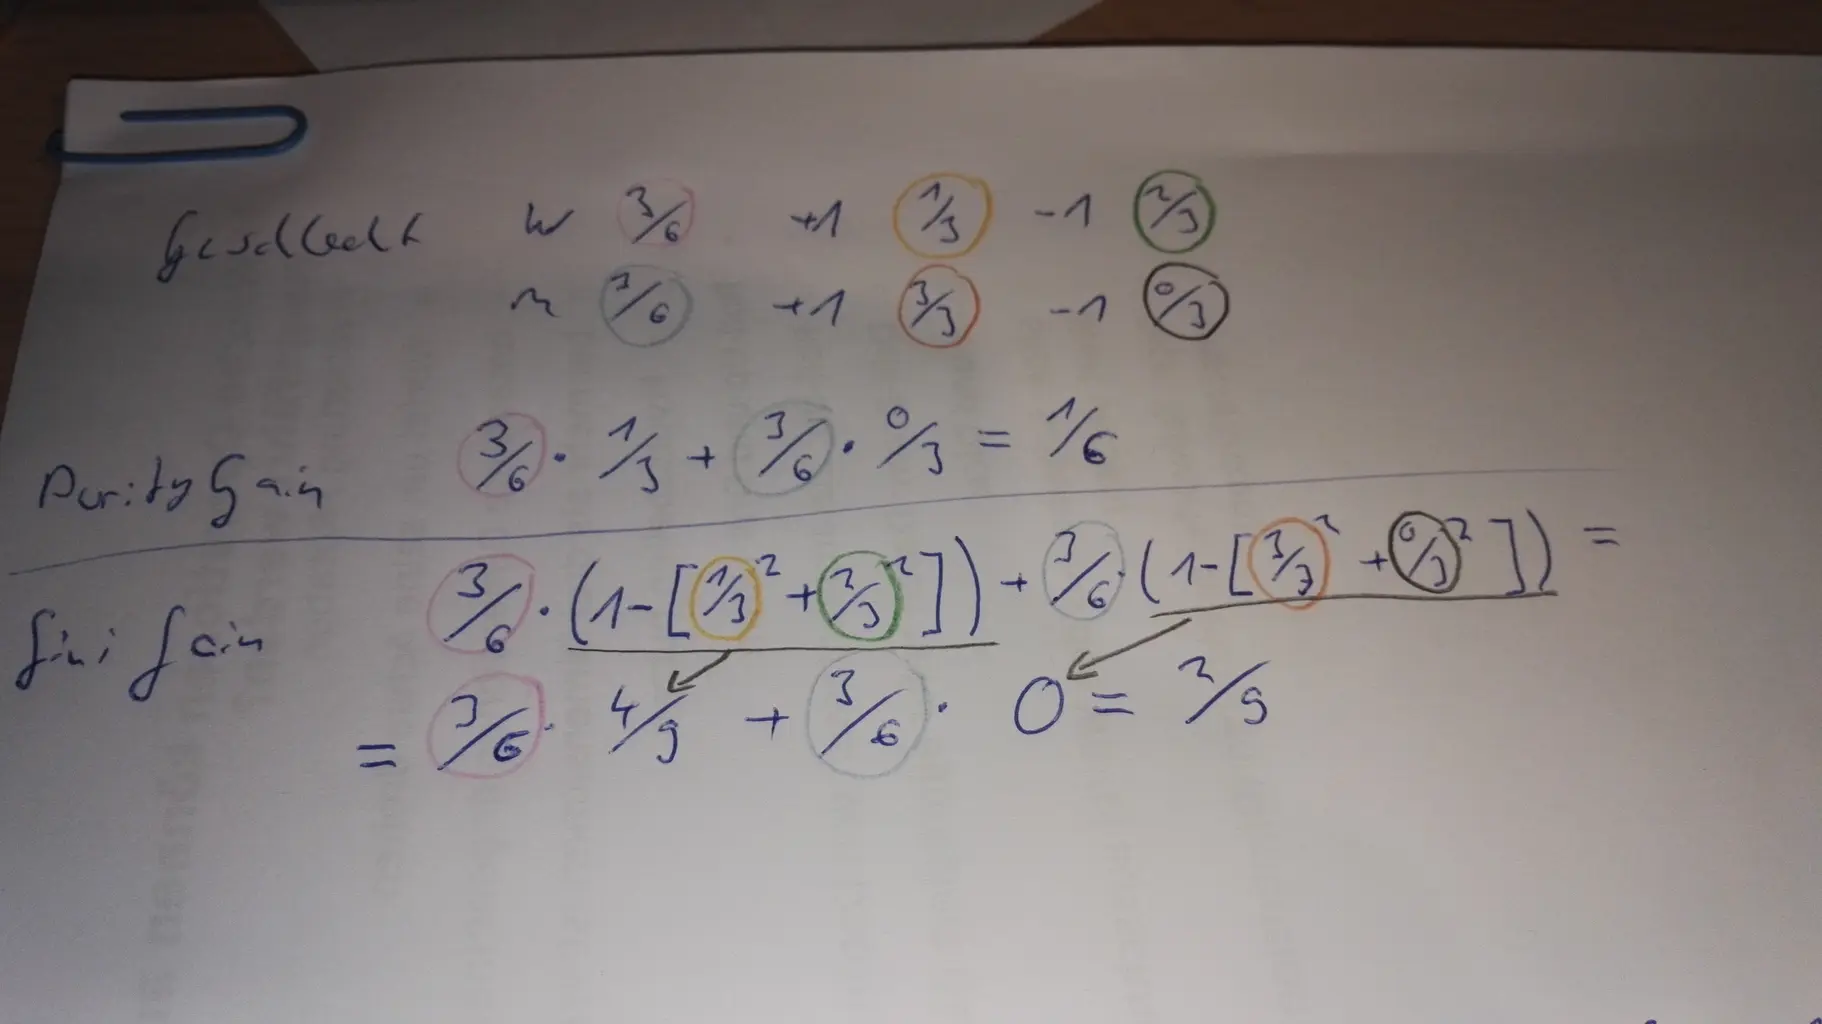 Geschlecht w 3/6 +1 1/3 -1 2/3
m 3/6 +1 3/3 -1 0/3
Purity Gain 3/6 · 1/3 + 3/6 · 0/3 = 1/6
Gini Gain 3/6 · (1-[1/3² + 2/3²]) + 3/6 · (1-[3/3² + 0/3²]) =
= 3/6 · 4/9 + 3/6 · 0 = 2/9